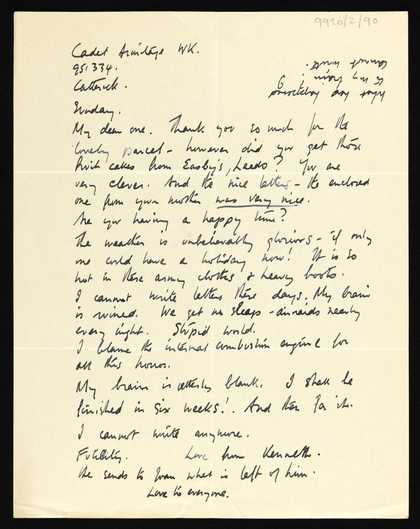 9920/2/90
Cadet Armitage WK.
951334.
Catterick.
Sunday.
My dear one. Thank you so much for the
lovely parcel - however did you get those
fruit cakes from Easby's, Leeds? You are
very clever. And the nice letters - the enclosed
one from your mother was very nice.
Are you having a happy time?
The weather is unbelievably glorious - if only
one could have a holiday now! It is so
hot in these army clothes & heavy boots.
I cannot write letters these days. My brain
is ruined. We get no sleep - airraids nearly
every night. Stupid world.
I blame the internal combustion engine for
all this horror.
My brain is utterly blank. I shall be
finished in six weeks! And then for it.
I cannot write anymore.
Futility. Love from Kenneth.
He sends to Joan what is left of him.
Love to everyone.
What
of my brain, I
cannot